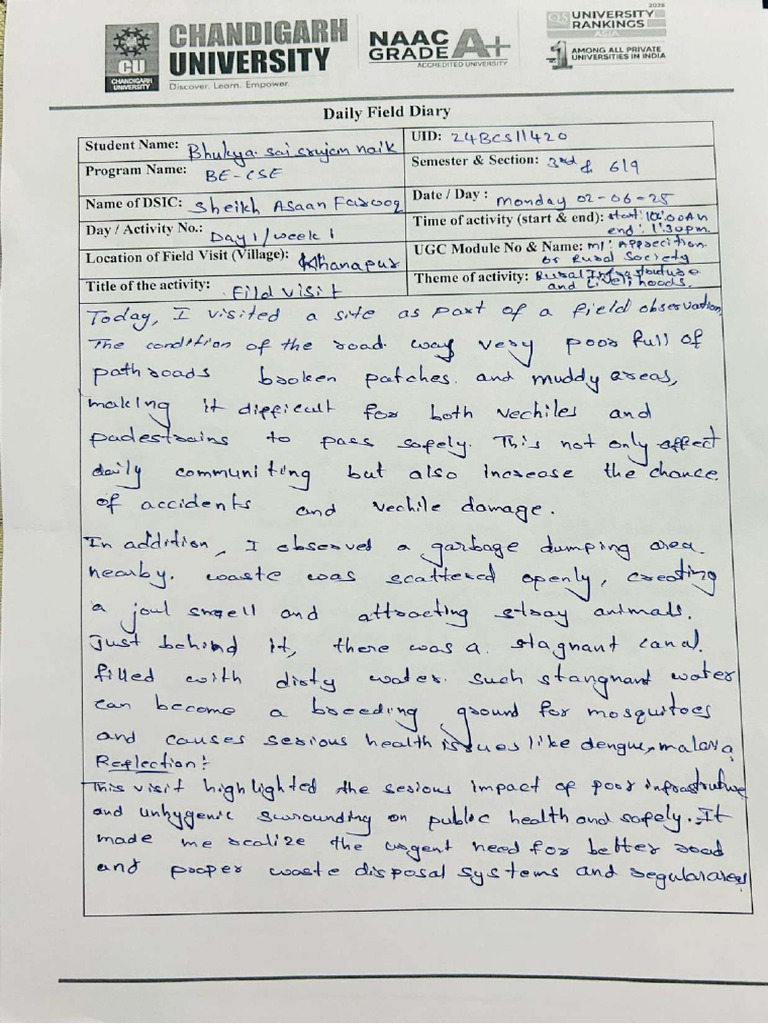 2026
CHANDIGARH
UNIVERSITY
Discover. Learn. Empower.
CU
CHANDIGARH
UNIVERSITY
NAAC
GRADE A+
ACCREDITED UNIVERSITY
QS UNIVERSITY
RANKINGS
ASIA
#1 AMONG ALL PRIVATE
UNIVERSITIES IN INDIA
Daily Field Diary
Student Name: Bhukya sai srujan naik
UID: 24BCS11420
Program Name: BE-CSE
Semester & Section: 3rd & 619
Name of DSIC: Sheikh Asaan Farooq
Date / Day : Monday 02-06-25
Day / Activity No.: Day1/week1
Time of activity (start & end): start: 10:00AM
end: 1:30pm.
Location of Field Visit (Village): Khanapur
UGC Module No & Name: M1: Apprecition
of Rural Society
Title of the activity: Fild visit
Theme of activity: Rural Infrastruture
and Livelihoods.
Today, I visited a site as part of a field observation
The condition of the road way very poor full of
path roads broken patches. and muddy areas,
making it difficult for both vechiles and
padestrains to pass safely. This not only affect
daily communiting but also increase the chance
of accidents and vechile damage.
In addition, I observed a garbage dumping area
nearby. waste was scattered openly, creating
a foul smell and attracting stray animals.
Just behind it, there was a. stagnant canal.
filled with dirty water. such stangnant water
can become a breeding ground for mosquitoes
and causes serious health issues like dengue, malaria
Reflection:
This visit highlighted the serious impact of poor infrastruture
and unhygenic surrounding on public health and safely. It
made me realize the urgent need for better road
and proper waste disposal systems and regular areas